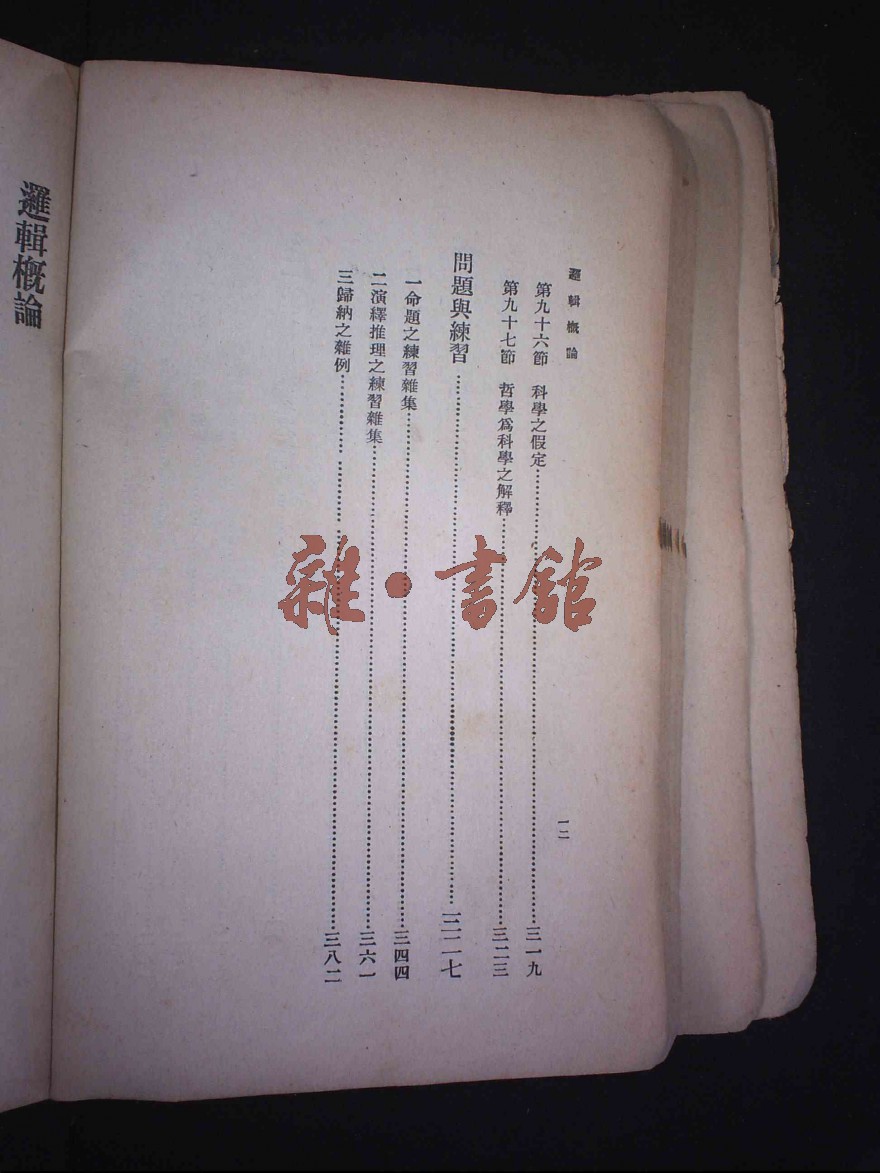 邏輯概論
一二
第九十六節　科學之假定…………三一九
第九十七節　哲學爲科學之解釋…………三二三
問題與練習…………三二七
一命題之練習雜集…………三四四
二演繹推理之練習雜集…………三六一
三歸納之雜例…………三八二
邏輯概論
雜·書館